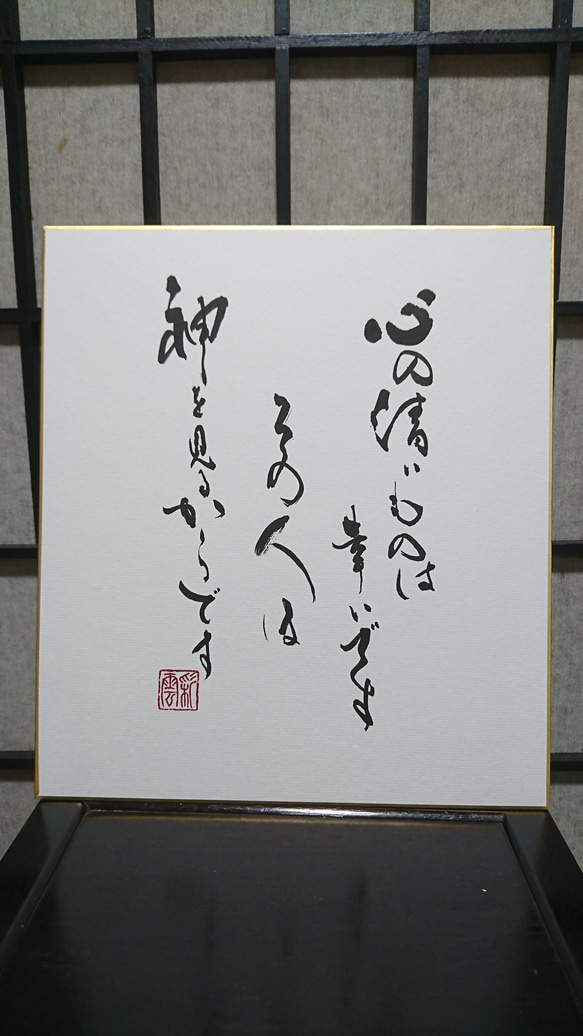 心の清いものは
幸いです
その人は
神を見るからです
彩雲